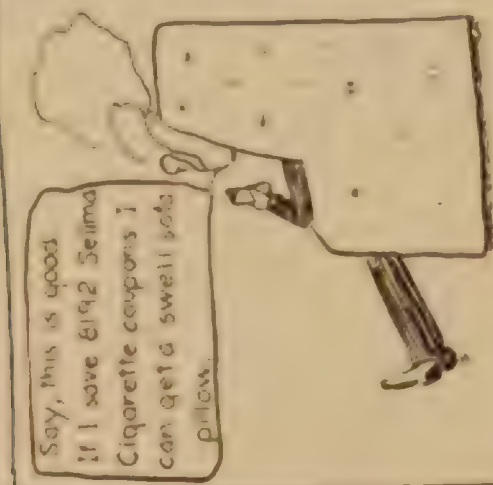 Say, this is good
If I save 8192 Selima
Cigarette coupons I
can get a swell sofa
pillow.